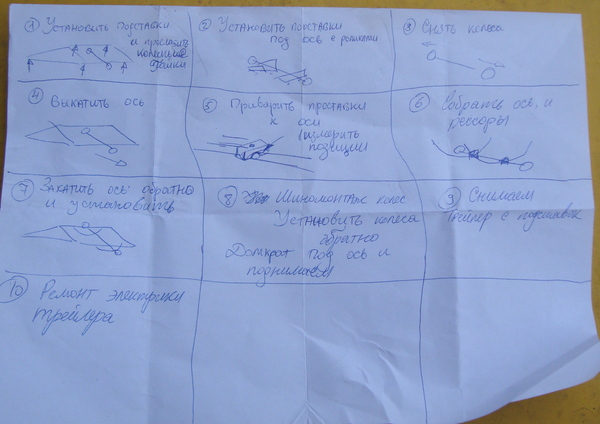 ① Установить подставки
и прослабить
колесные
гайки
② Установить подставки
под ось с роликами
③ Снять колеса
④ Выкатить ось
⑤ Приварить проставки
к оси
(измерить
позиции)
⑥ Собрать ось и
рессоры
⑦ Закатить ось обратно
и установить
⑧ Шиномонтаж колес
Установить колеса
обратно
Домкрат под ось и
поднимаем
⑨ Снимаем
трейлер с подставок
⑩ Ремонт электрики
трейлера